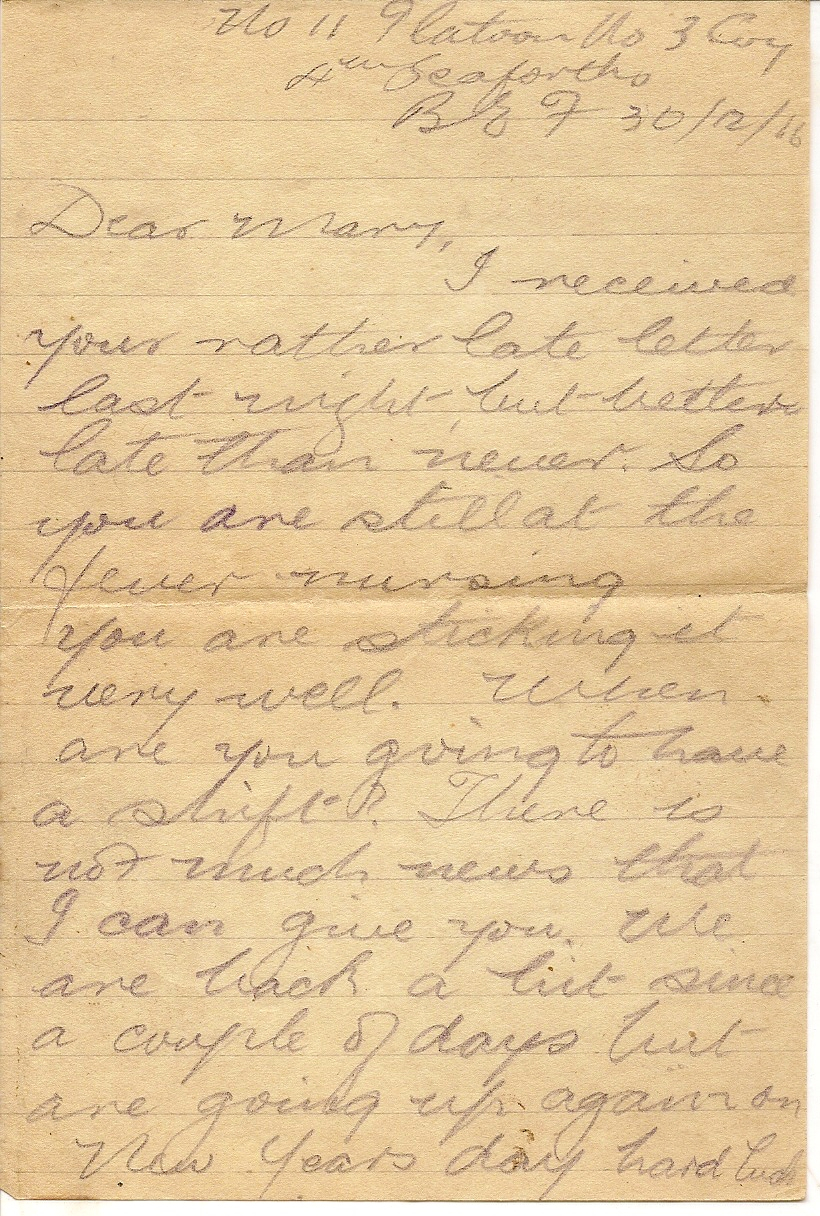 No 11 Platoon No 3 Coy
4th Seaforths
B E F 30/12/16
Dear Mary,
I received
your rather late letter
last night, but better
late than never. So
you are still at the
fever nursing
you are sticking it
very well. When
are you going to have
a shift? There is
not much news that
I can give you. We
are back a bit since
a couple of days but
are going up again on
New Years day hard luck